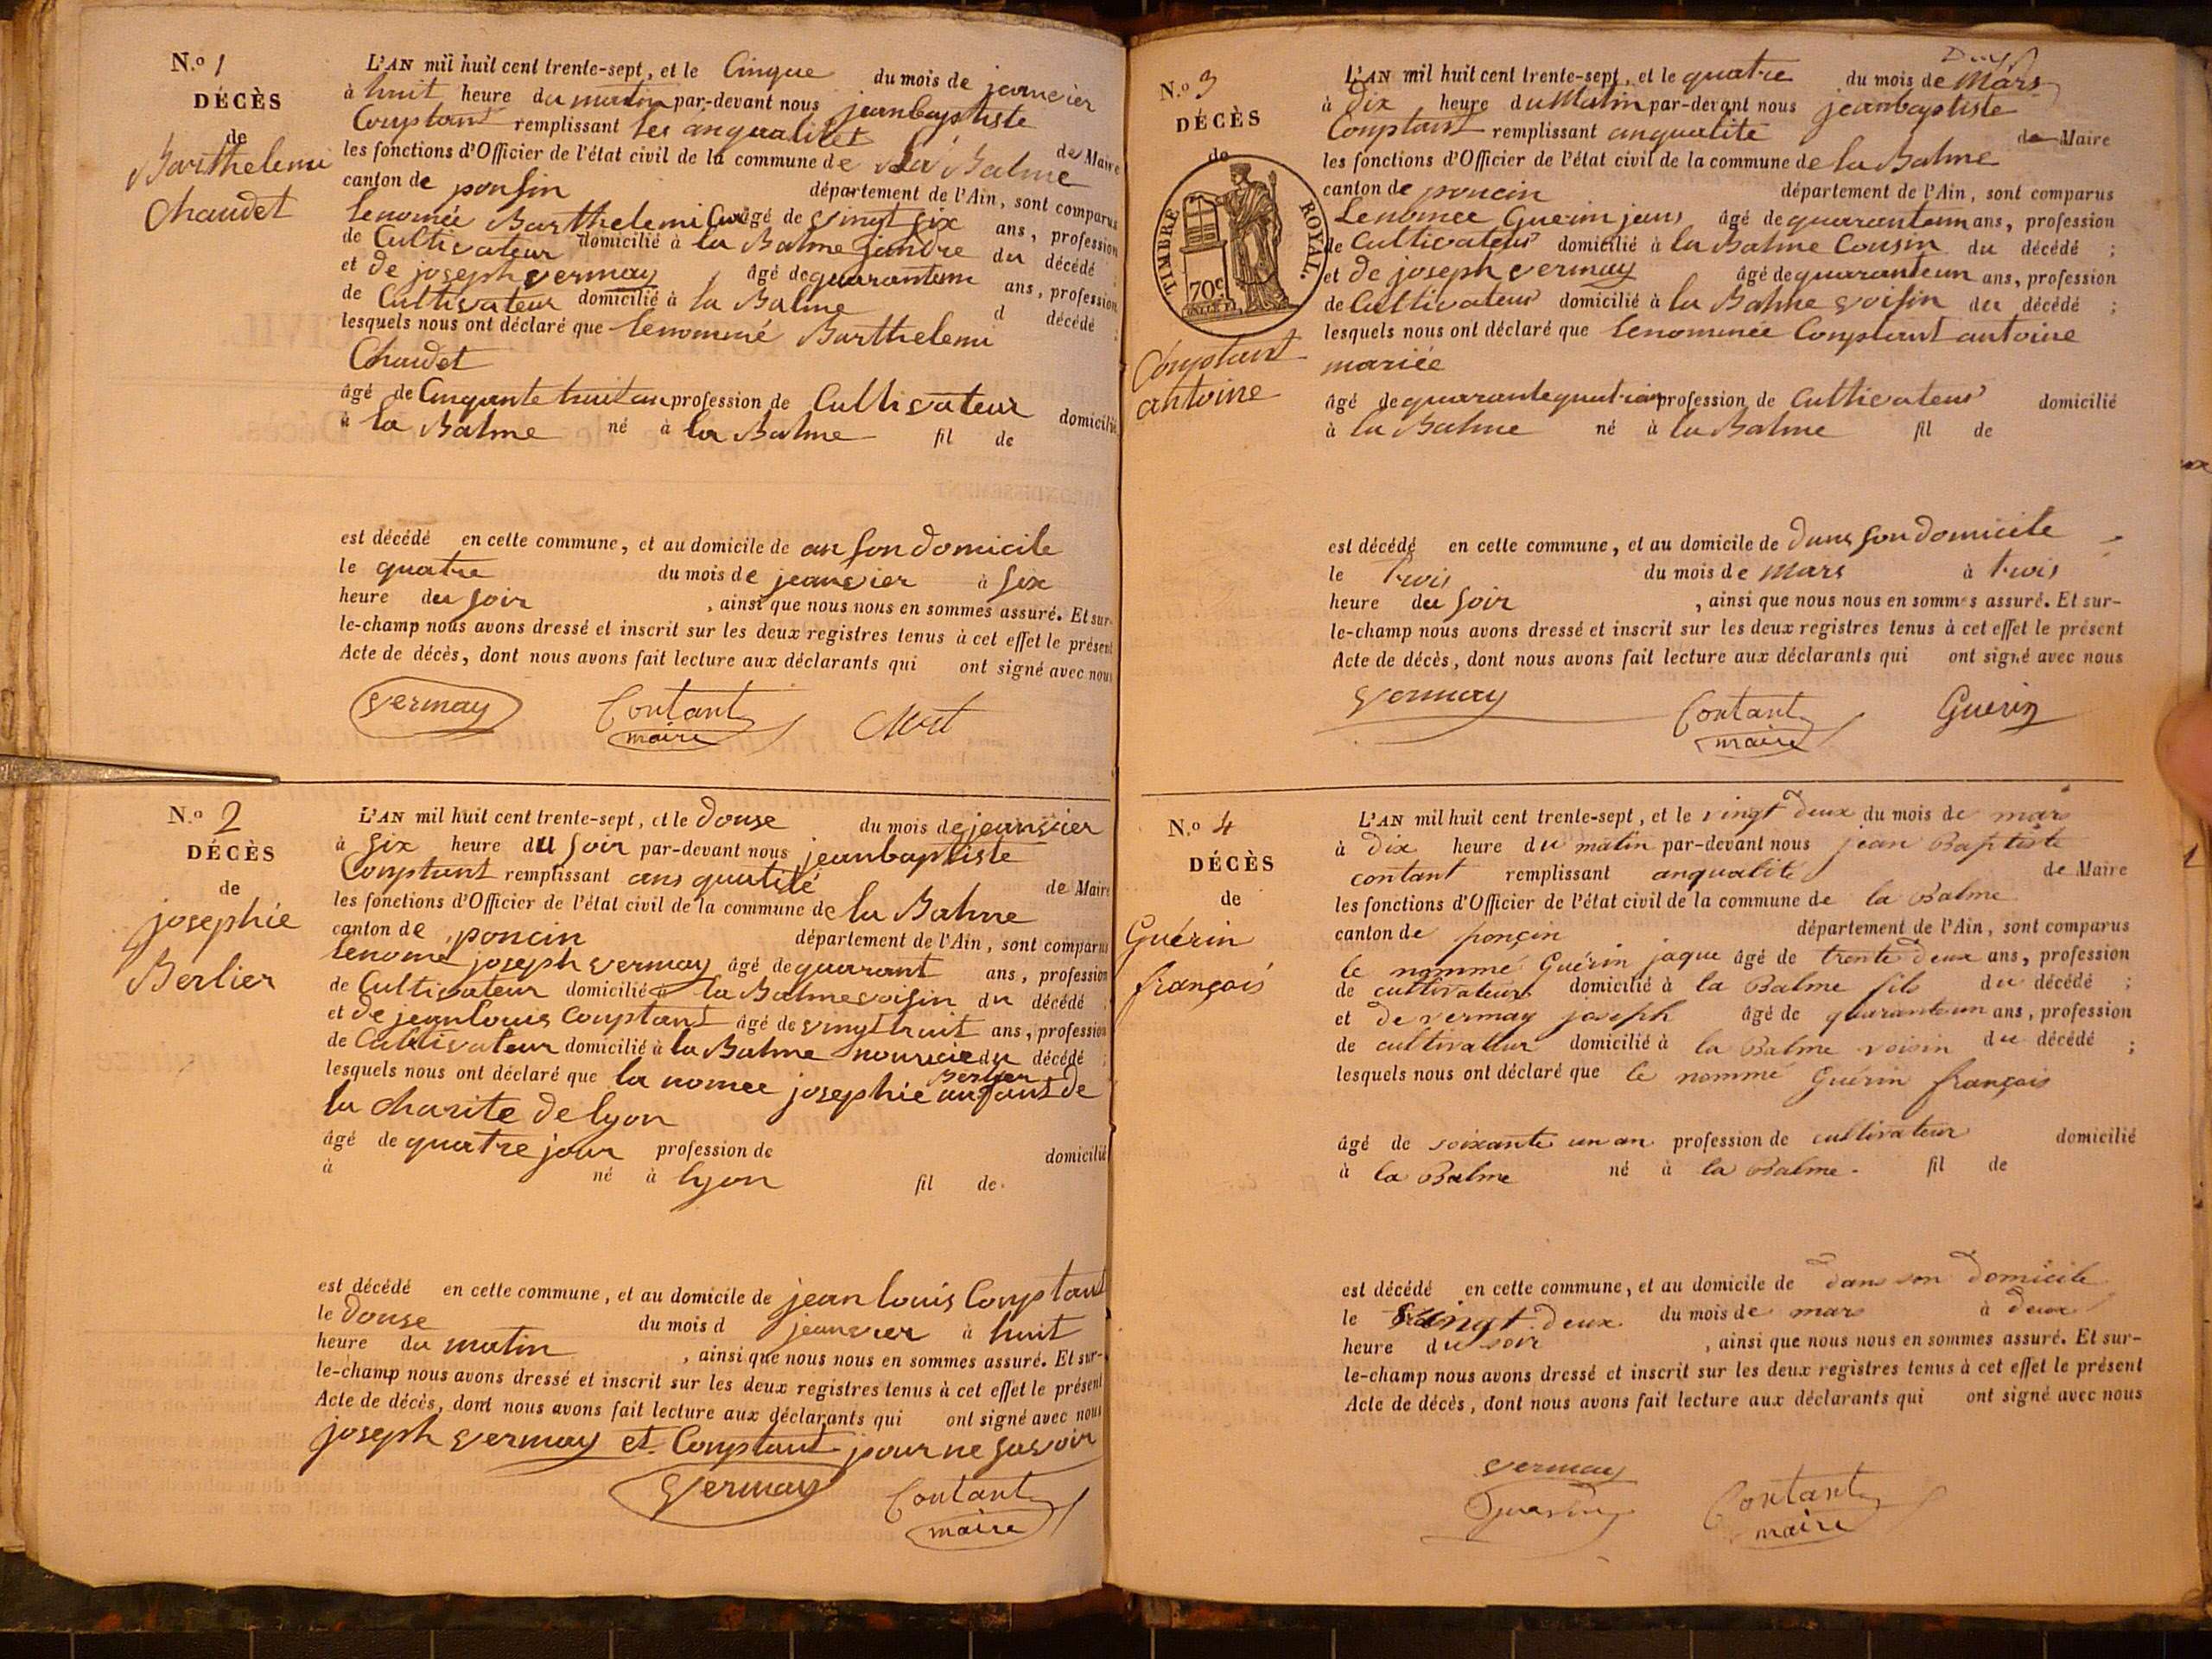 N.º 1
DÉCÈS
de
Barthelemi
Chaudet
L'AN mil huit cent trente-sept, et le Cinque du mois de janvier
à huit heure du matin par-devant nous jeanbaptiste
Comptant remplissant les anqualites de Maire
les fonctions d'Officier de l'état civil de la commune de La Balme
canton de ponsin département de l'Ain, sont comparus
lenomée Barthelemi âgé de vingt six ans, profession
de Cultivateur domicilié à la Balme jandre du décédé ;
et de joseph vermay âgé de quarantun ans, profession
de Cultivateur domicilié à la Balme d décédé ;
lesquels nous ont déclaré que lenommé Barthelemi
Chaudet
âgé de Cinquante huit an profession de Cultivateur domicilié
à la Balme né à la Balme fil de
est décédé en cette commune, et au domicile de an son domicile
le quatre du mois de jeanvier à six
heure du soir , ainsi que nous nous en sommes assuré. Et sur-
le-champ nous avons dressé et inscrit sur les deux registres tenus à cet effet le présent
Acte de décès, dont nous avons fait lecture aux déclarants qui ont signé avec nous
vermay Contant
maire
N.º 2
DÉCÈS
de
josephie
Berlier
L'AN mil huit cent trente-sept, et le douse du mois de jeanvier
à six heure du soir par-devant nous jeanbaptiste
Comptant remplissant ans qualité de Maire
les fonctions d'Officier de l'état civil de la commune de la Balme
canton de poncin département de l'Ain, sont comparus
lenomé joseph vermay âgé de quarant ans, profession
de Cultivateur domicilié à la Balme voisin du décédé ;
et de jeanlouis Comptant âgé de vingt huit ans, profession
de Cultivateur domicilié à la Balme nouricie du décédé ;
Berlier
lesquels nous ont déclaré que la nomee josephie anfant de
la charite de lyon
âgé de quatre jour profession de domicilié
à né à lyon fil de
est décédé en cette commune, et au domicile de jean louis Comptant
le douse du mois d jeanvier à huit
heure du matin , ainsi que nous nous en sommes assuré. Et sur-
le-champ nous avons dressé et inscrit sur les deux registres tenus à cet effet le présent
Acte de décès, dont nous avons fait lecture aux déclarants qui ont signé avec nous
joseph vermay et Comptant pour ne savoir
vermay Contant
maire
N.º 3
DÉCÈS
de
TIMBRE ROYAL.
70c
Comptant
antoine
L'AN mil huit cent trente-sept, et le quatre du mois de Mars
à dix heure du Matin par-devant nous jeanbaptiste
Comptant remplissant anqualité de Maire
les fonctions d'Officier de l'état civil de la commune de la Balme
canton de poncin département de l'Ain, sont comparus
Lenomee Guerin jean âgé de quarantun ans, profession
de Cultivateur domicilié à la Balme Cousin du décédé ;
et de joseph vermay âgé de quarantun ans, profession
de Cultivateur domicilié à la Balme voisin du décédé ;
lesquels nous ont déclaré que lenommee Comptant antoine
mariée
âgé de quarantequatre an profession de Cultivateur domicilié
à la Balme né à la Balme fil de
est décédé en cette commune, et au domicile de dans son domicile
le trois du mois de mars à trois
heure du soir , ainsi que nous nous en sommes assuré. Et sur-
le-champ nous avons dressé et inscrit sur les deux registres tenus à cet effet le présent
Acte de décès, dont nous avons fait lecture aux déclarants qui ont signé avec nous
vermay Contant Guerin
maire
N.º 4
DÉCÈS
de
Guérin
françois
L'AN mil huit cent trente-sept, et le vingt deux du mois de mars
à dix heure du matin par-devant nous jean Baptiste
contant remplissant anqualité de Maire
les fonctions d'Officier de l'état civil de la commune de la Balme
canton de ponçin département de l'Ain, sont comparus
le nommé Guérin jaque âgé de trente deux ans, profession
de cultivateur domicilié à la Balme fils du décédé ;
et de vermay joseph âgé de quaranteun ans, profession
de cultivateur domicilié à la Balme voisin du décédé ;
lesquels nous ont déclaré que le nommé Guérin françois
âgé de soixante un an profession de cultivateur domicilié
à la Balme né à la Balme. fil de
est décédé en cette commune, et au domicile de dans son domicile
le vingt deux du mois de mars à deux
heure du soir , ainsi que nous nous en sommes assuré. Et sur-
le-champ nous avons dressé et inscrit sur les deux registres tenus à cet effet le présent
Acte de décès, dont nous avons fait lecture aux déclarants qui ont signé avec nous
vermay
Guerin Contant
maire